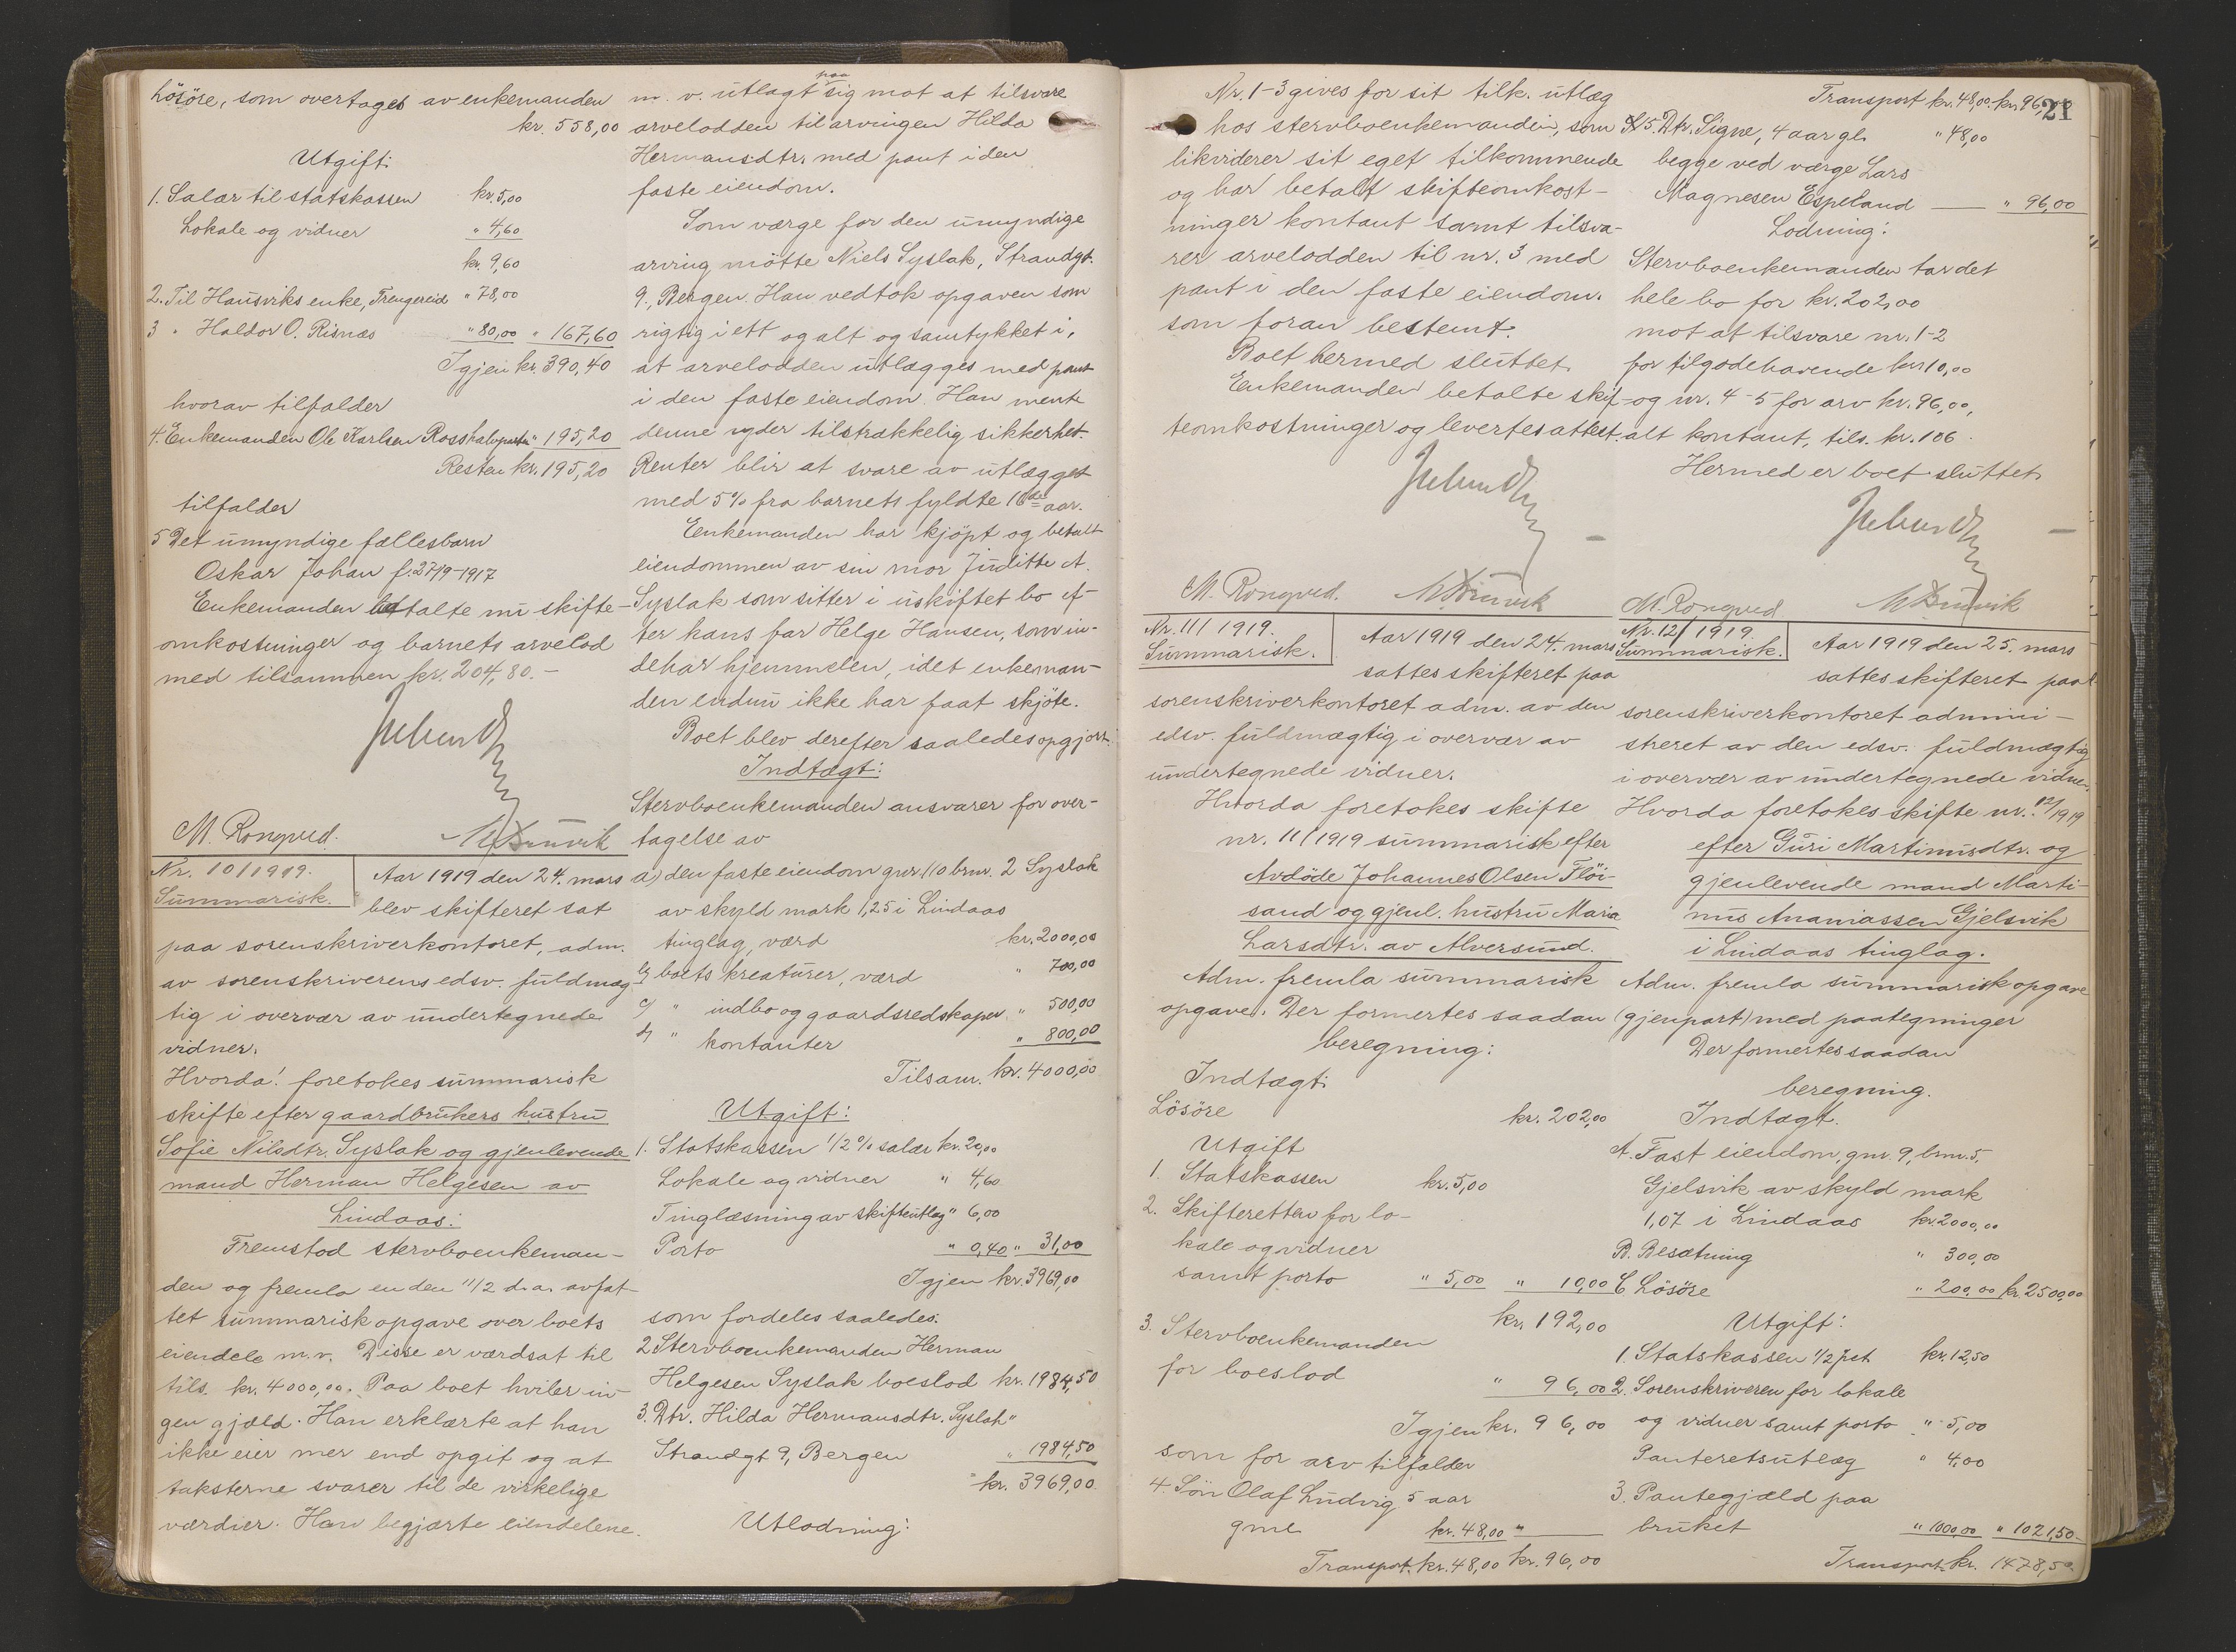 Lösöre, som overtages av enkemanden
kr. 558,00
Utgift:
1. Salær til statskassen kr. 5,00
Lokale og vidner " 4,60
kr. 9,60
2. Til Hausviks enke, Trengereid " 78,00
3 " Haldor O. Risnæs " 80,00 " 167,60
Igjen kr. 390,40
hvorav tilfalder
4. Enkemanden Ole Karlsen Rosshalvparten " 195,20
Resten kr. 195,20
tilfalder
5 Det umyndige fællesbarn
Oskar Johan f. 27/9-1917
Enkemanden betalte nu skifte-
omkostninger og barnets arvelod
med tilsammen kr. 204,80.-
M. Rongved.
Nr. 10/1919.
Summarisk.
Aar 1919 den 24. mars
blev skifteret sat
paa sorenskriverkontoret, adm.
av sorenskriverens edsv. fuldmæg-
tig i overvær av undertegnede
vidner.
Hvorda! foretokes summarisk
skifte efter gaardbrukers hustru
Sofie Nilsdtr. Syslak og gjenlevende
mand Herman Helgesen av
Lindaas:
Fremstod stervboenkeman-
den og fremla en den 11/2 d.a. avfat-
tet summarisk opgave over boets
eiendele m.v. Disse er værdsat til
tils. kr. 4000,00. Paa boet hviler in-
gen gjæld. Han erklærte at han
ikke eier mer end opgit og at
taksterne svarer til de virkelige
værdier. Han begjærte eiendelene
m. v. utlagt paa sig mot at tilsvare
arvelodden til arvingen Hilda
Hermansdtr. med pant i den
faste eiendom.
Som værge for den umyndige
arving mötte Niels Syslak, Strandgt.
9, Bergen. Han vedtok opgaven som
rigtig i ett og alt og samtykket i,
at arvelodden utlægges med pant
i den faste eiendom. Han mente
denne yder tilstrækkelig sikkerhet.
Renter blir at svare av utlægget
med 5% fra barnets fyldte 16de aar.
Eenkemanden har kjöpt og betalt
eiendommen av sin mor Juditte A.
Syslak som sitter i uskiftet bo ef-
ter hans far Helge Hansen, som in-
dehar hjemmelen, idet enkeman-
den endnu ikke har faat skjöte.
Boet blev derefter saaledes opgjort:
Indtægt:
Stervboenkemanden ansvarer for over-
tagelse av
a) den faste eiendom gnr. 110 brnr. 2 Syslak
av skyld mark 1,25 i Lindaas
tinglag, værd kr. 2000,00
b) boets kreaturer, værd " 700,00
c) " indbo og gaardsredskaper " 500,00
d) " kontanter " 800,00
Tilsam. kr. 4000,00
Utgift:
1. Statskassen 1/2 % salær kr. 20,00
Lokale og vidner " 4,60
Tinglæsning av skifteutlæg " 6,00
Porto " 0,40 " 31,00
Igjen kr. 3969,00
som fordeles saaledes:
2 Stervboenkemanden Herman
Helgesen Syslak boeslod kr. 1984,50
3. Dtr. Hilda Hermansdtr. Syslak "
Strandgt 9, Bergen " 1984,50
kr. 3969,00.
Utlodning:
Nr. 1-3 gives for sit tilk. utlæg
hos stervboenkemanden, som
likviderer sit eget tilkommende
og har betalt skifteomkost-
ninger kontant samt tilsva-
rer arvelodden til nr. 3 med
pant i den faste eiendom.
som foran bestemt.
Boet hermed sluttet.
Enkemanden betalte skif-
teomkostninger og levertes attest.
M. Rongved.
Nr. 11/1919.
Summarisk.
Aar 1919 den 24. mars
sattes skifteret paa
sorenskriverkontoret adm. av den
edsv. fuldmægtig i overvær av
undertegnede vidner.
Hvorda foretokes skifte
nr. 11/1919 summarisk efter
Avdöde Johannes Olsen Flöi-
sand og gjenl. hustru Maria
Larsdtr. av Alversund.
Adm. fremla summarisk
opgave. Der formertes saadan
beregning:
Indtægt:
Lösöre kr. 202,00
Utgift
1. Statskassen kr. 5,00
2. Skifteretten for lo-
kale og vidner
samt porto " 5,00 " 10,00
kr. 192,00
3. Stervboenkemanden
for boeslod " 96,00
Igjen kr. 96,00
som for arv tilfalder
4. Sön Olaf Ludvig 5 aar
gml. kr. 48,00 "
Transport. kr. 48,00 kr. 96,00
21
Transport kr. 48,00. kr. 96,00
5. Dtr. Signe, 4 aar gl. " 48,00
begge ved værge Lars
Magnesen Espeland " 96,00
Lodning:
Stervboenkemanden tar det
hele bo for kr. 202,00
mot at tilsvare nr. 1-2
for tilgodehavende kr. 10,00
og nr. 4-5 for arv kr. 96,00,
alt kontant, tils. kr. 106.
Hermed er boet sluttet.
M. Rongved
Nr. 12/1919.
Summarisk.
Aar 1919 den 25. mars
sattes skifteret paa
sorenskriverkontoret admini-
streret av den edsv. fuldmægtig
i overvær av undertegnede vidner.
Hvorda foretokes skifte nr. 12/1919
efter Guri Martinusdtr. og
gjenlevende mand Marti-
nus Ananiassen Gjelsvik
i Lindaas tinglag.
Adm. fremla summarisk opgave
(gjenpart) med paategninger
Der formertes saadan
beregning.
Indtægt.
A. Fast eiendom, gnr. 9, brnr. 5.
Gjelsvik av skyld mark
1,07 i Lindaas kr. 2000,00
B. Besætning " 300,00
C Lösöre " 200,00 kr. 2500,00
Utgift:
1. Statskassen 1/2 pct kr. 12,50
2. Sorenskriveren for lokale
og vidner samt porto " 5,00
Panteretsutlæg " 4,00
3. Pantegjæld paa
bruket " 1000,00 " 1021,50
Transport kr. 1478,50